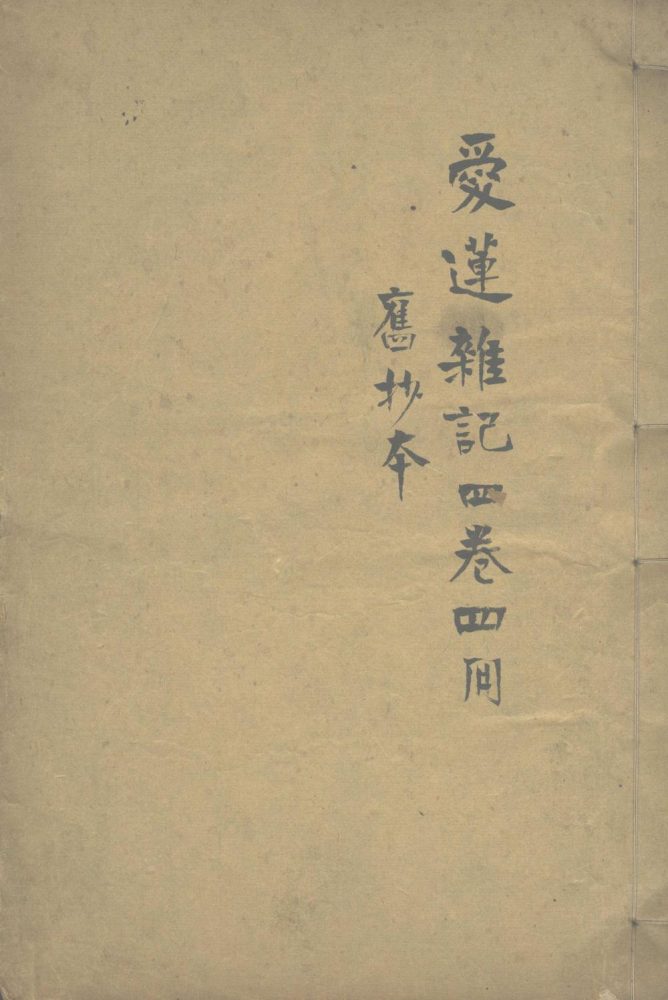 愛蓮雜記四卷四
舊抄本